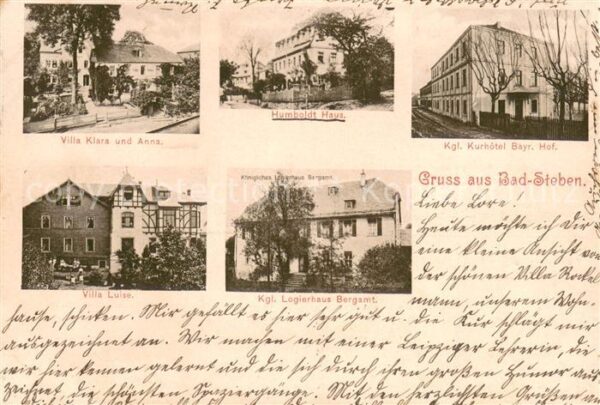 Villa Klara und Anna.
Humboldt Haus.
Kgl. Kurhôtel Bayr. Hof.
Königliches Logierhaus Bergamt.
Villa Luise.
Kgl. Logierhaus Bergamt.
Gruss aus Bad-Steben.
Liebe Lore!
Heute möchte ich Dir
eine kleine Ansicht von
der schönen Villa Rockel
mann, unserem Wohn-
hause, schicken. Mir gefällt es hier sehr gut u. die Kur schlägt mir
ausgezeichnet an. Wir machen mit einer Leipziger Lehrerin, die
wir hier kennen gelernt und die sich durch ihren großen Humor aus-
zeichnet, die schönsten Spaziergänge. Mit den herzlichsten Grüßen an